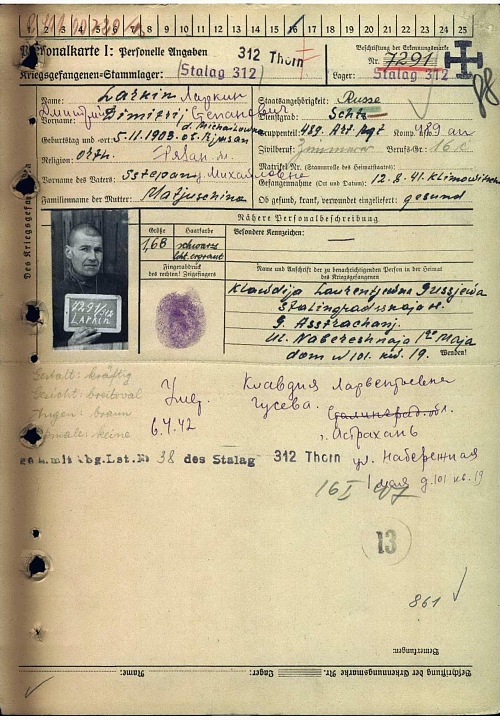 1 2 3 4 5 6 7 8 9 10 11 12 13 14 15 16 17 18 19 20 21 22 23 24 25
Personalkarte I: Personelle Angaben
312 Thorn
Beschriftung der Erkennungsmarke
Nr. 7291
Kriegsgefangenen-Stammlager: Stalag 312
Lager: Stalag 312
Name: Larkin Ларкин
Staatsangehörigkeit: Russe
Дмитрий Степанович
Vorname: Dimitrij
Dienstgrad: Schtz.
d. Michailowka
Truppenteil: 489. Art. Rgt Komp. 489 ап
Geburtstag und -ort: 5.11.1903. Ob. Rjasan
Zivilberuf: Berufs-Gr.: 16
Religion: Orth.
Matrikel Nr. (Stammrolle des Heimatstaates):
Vorname des Vaters: Sstepan
Gefangennahme (Ort und Datum): 12.8.41. Klimowitschi
Familienname der Mutter: Matjuschina
Ob gesund, krank, verwundet eingeliefert: gesund
Des Kriegsgefangenen
Nähere Personalbeschreibung
Größe
Haarfarbe
Besondere Kennzeichen: —
1,68
schwarz
Fingerabdruck
des rechten! Zeigefingers
Name und Anschrift der zu benachrichtigenden Person in der Heimat
des Kriegsgefangenen
7291/312
LARKIN
Klawdija Lawrentjewna Gussjewa
Stalingradskaja o.
G. Asstrachanj.
Ul. Nabereshnaja 1go Maja
dom N 101. kw. 19.
Wenden!
Gestalt: kräftig
Gesicht: breitoval
Augen: braun
keine
Умер.
6.4.42
Клавдия Лаврентьевна
Гусева.
Сталинград. обл.
г. Астрахань
ул. Набережная
1 мая д. 101 кв. 19
gem. mit Abg.Lst.Nr 38 des Stalag 312 Thorn
13
861
Bemerkungen:
Beschriftung der Erkennungsmarke Nr. Lager: Name: